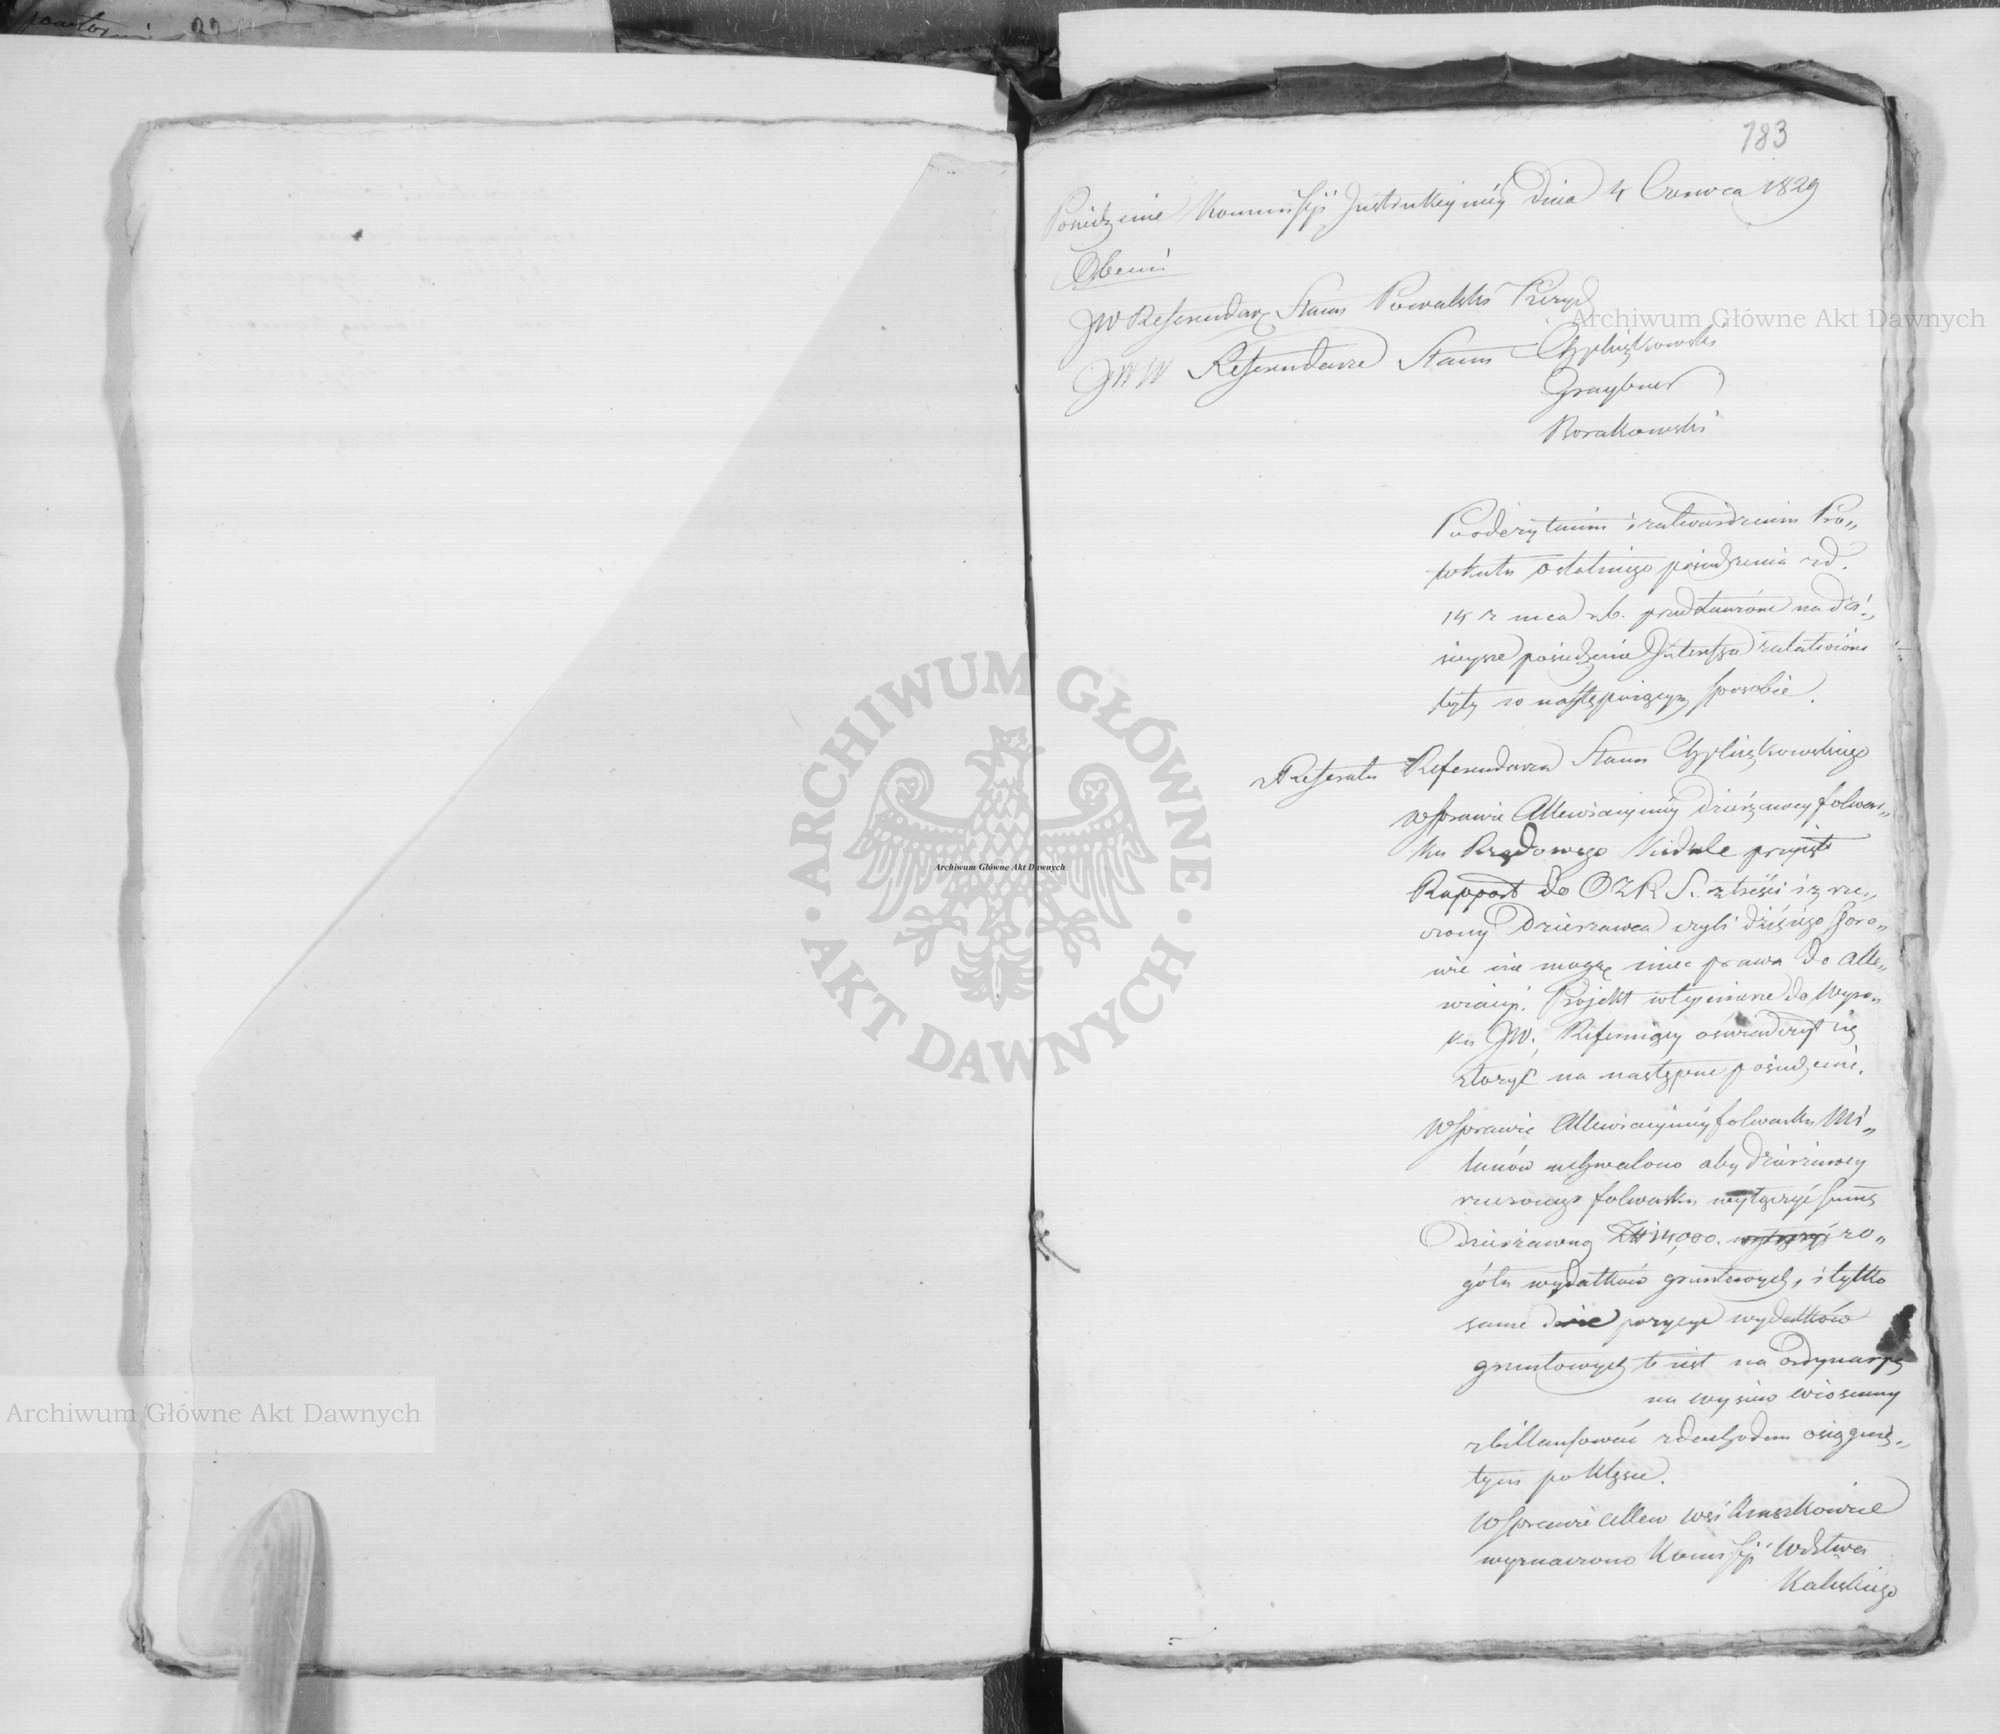 183
Posiedzenie Kommissyi Instrukcyinéy Dnia 4 Czerwca 1829
Obecni
JW Referendarz Stanu Kowalski Prezyd
JWW Referendarze Stanu Chyliczkowski
Graybner
Borakowski
Po odczytaniu i zatwierdzeniu Pro„
tokułu ostatniego posiedzenia z d.
14 z mca r.b. przedstawione na dzi„
siejsze posiedzenie Interessa załatwione
były w następuiącym sposobie.
z Referatu Referendarza Stanu Chyliczkowskiego
W sprawie Allewiacyinéy dzierżawcy folwar„
ku Rządowego przyięto
Rapport do treści iż rze„
czony Dzierzawca czyli dzisiejsi
nie mogą mieć prawa do Alle„
wiacyi. Projekt do Wyro„
ku JW. Referuiący oświadczył się
złożyć na następne posiedzenie.
W sprawie Allewiacyinéy folwarku Mi„
lanów uchwalono aby dzierżawcy
rzeczonego folwarku wyłączyć summę
Dzierżawną Zł 14,000. wyłączyć z o„
gółu wydatków gruntowych, i tylko
same dwie pozycye wydatków
gruntowych to iest na Ordynaryą
na wysiew wiosenny
zbillansować z dochodem osiągnię„
tym po klęsce.
W sprawie allew wsi Kruszkowice
wyznaczono Komissyi Wdztwa
Kaliskiego
Archiwum Główne Akt Dawnych
Archiwum Główne Akt Dawnych
Archiwum Główne Akt Dawnych
ARCHIWUM GŁÓWNE · AKT DAWNYCH ·